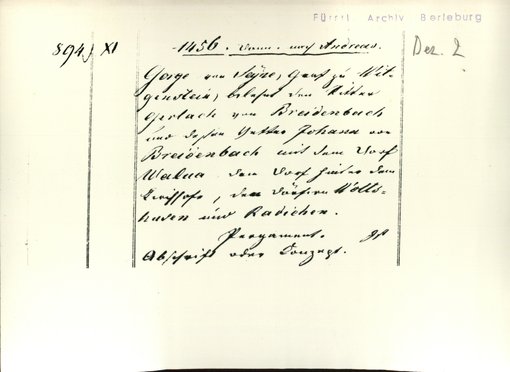 Fürstl. Archiv Berleburg
894 XI
1456. Donn. nach Andreas.
Dez. 2
Georg von Sayn, Graf zu Wit-
genstein, belehnt den Ritter
Gerlach von Breidenbach
und dessen Vetter Johann von
Breidenbach mit dem Dorf
Walua dem Dorf hinter dem
Kirchhofe, den Dörfern Wolls-
husen und Radichen.
Pergament.
Abschrift oder Konzept.